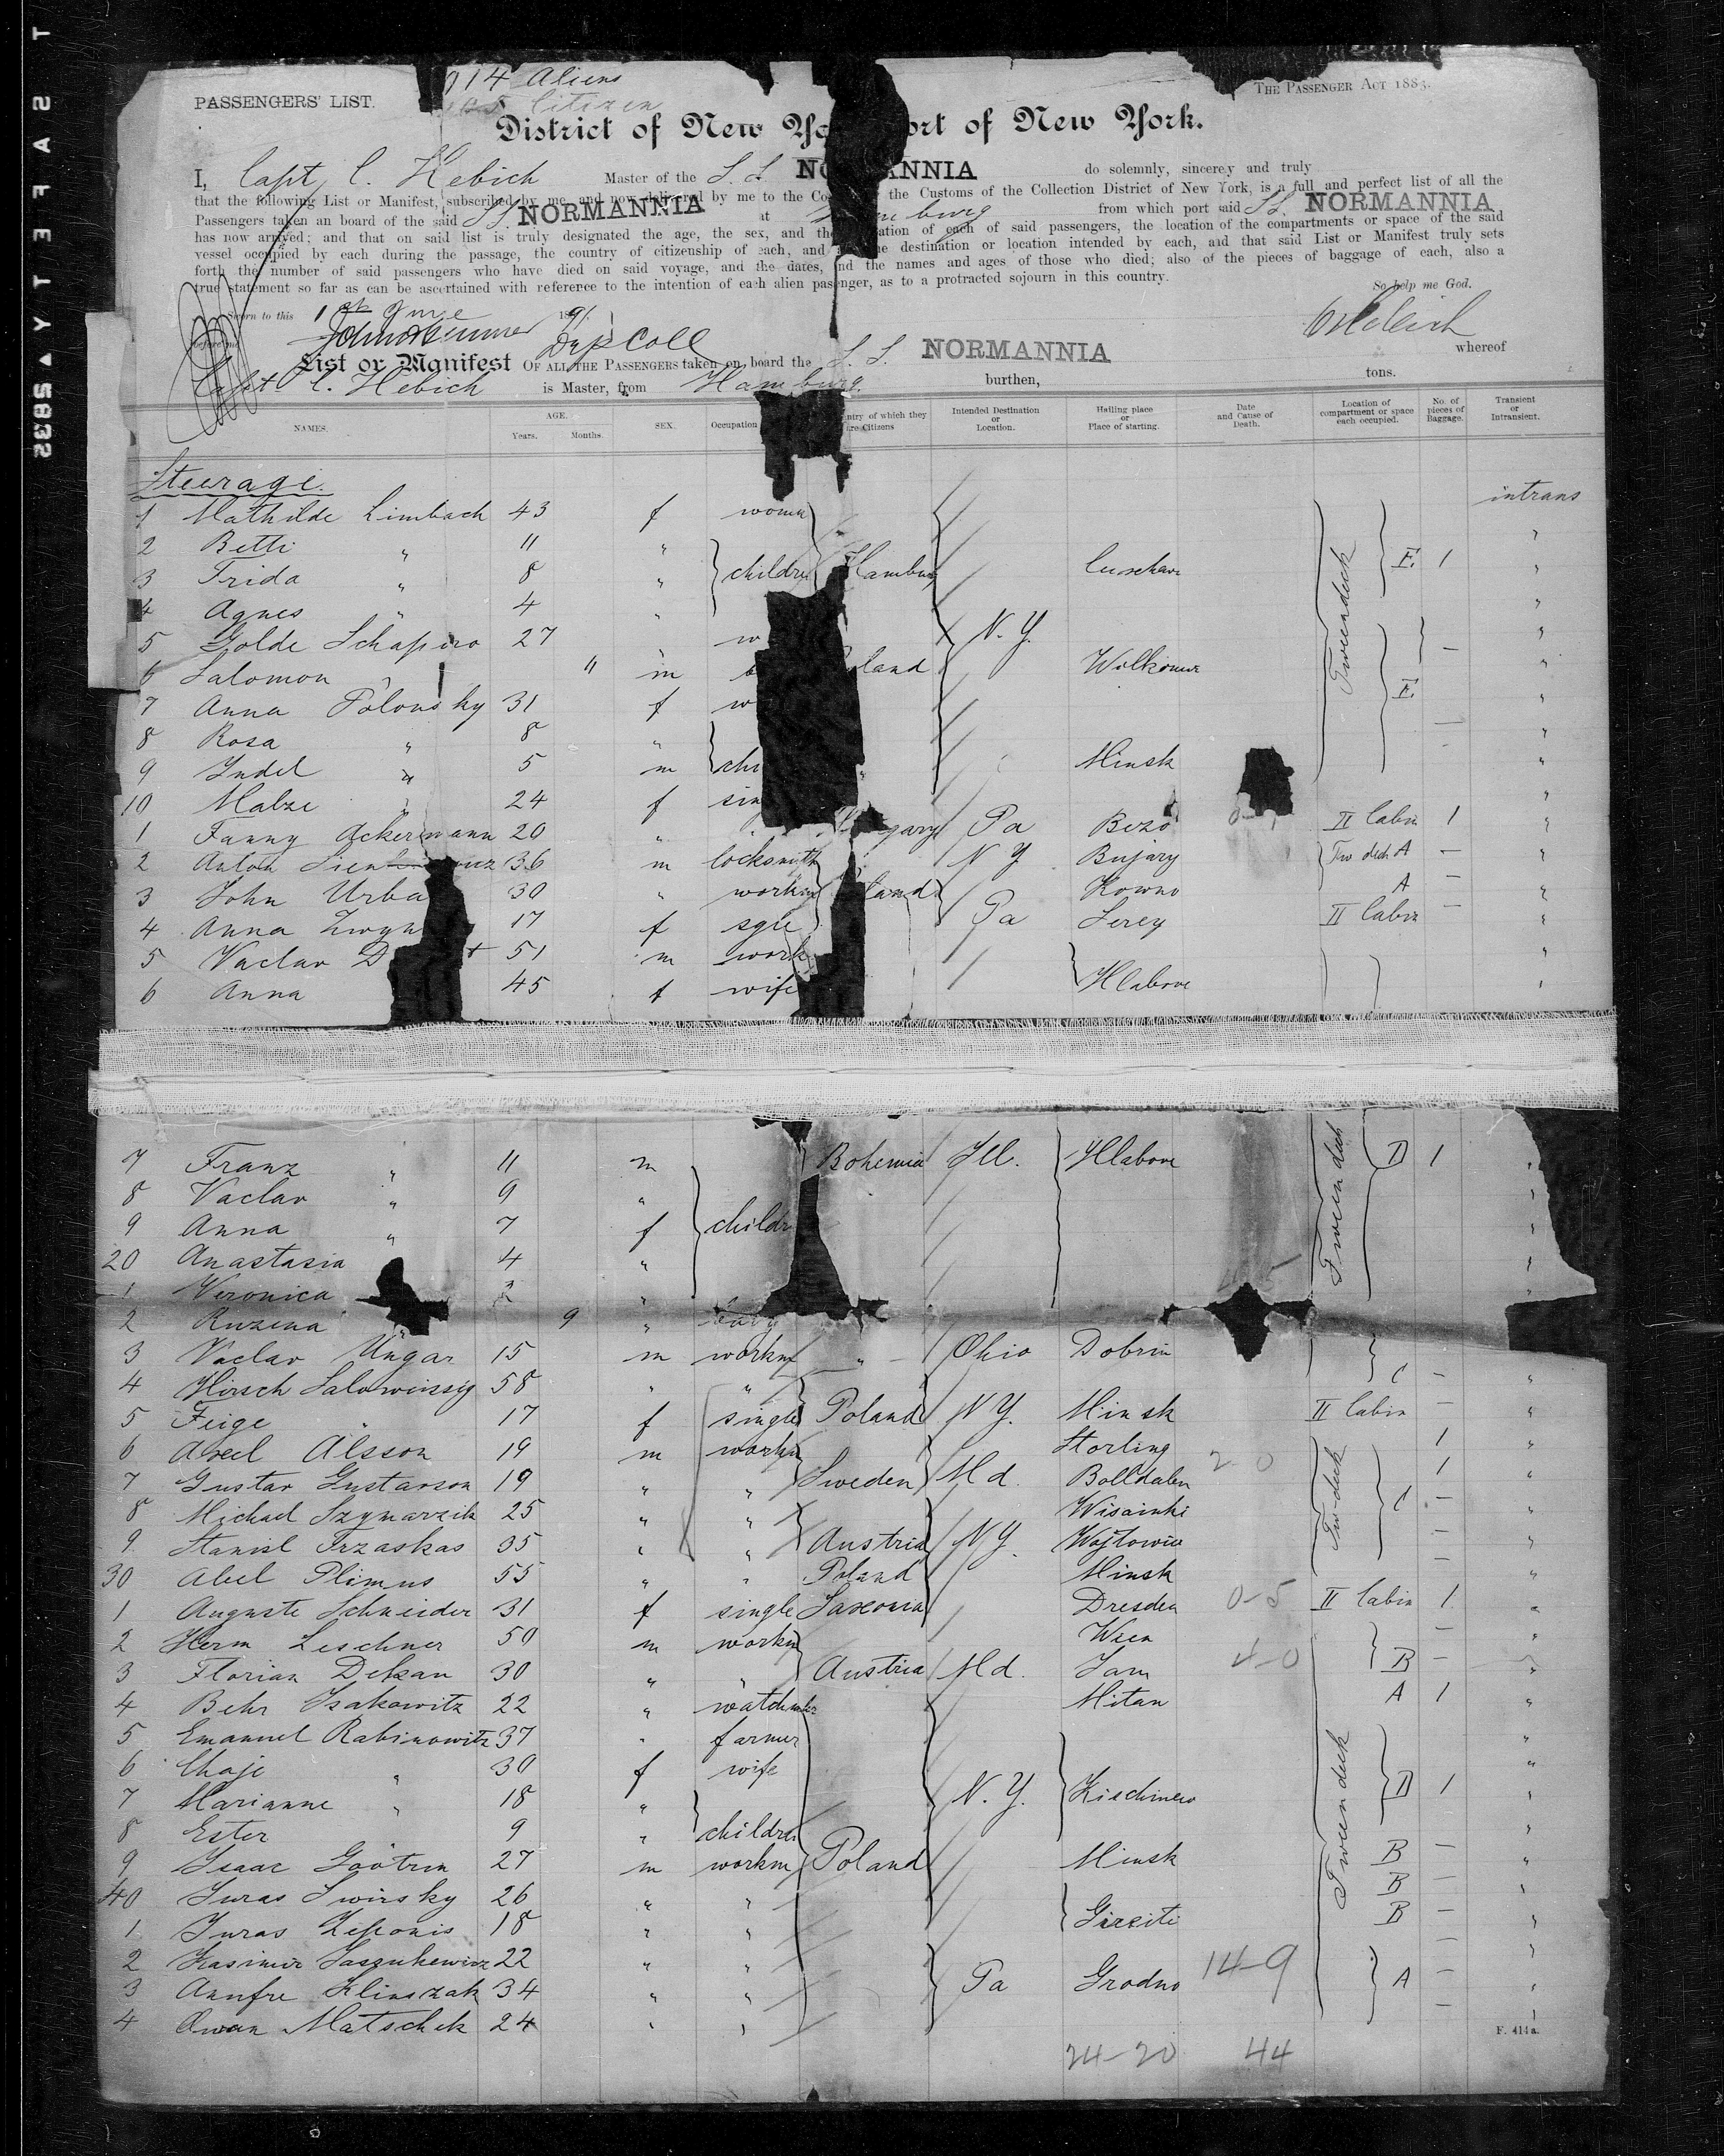 SAFETY
S8832
914 Aliens
Citizen
PASSENGERS' LIST.
THE PASSENGER ACT 1883.
District of New Yo ort of New York.
I, Capt C. Hebich Master of the S.S. NORMANNIA do solemnly, sincerely and truly
that the following List or Manifest, subscribed by me, and now delivered by me to the the Customs of the Collection District of New York, is a full and perfect list of all the
Passengers taken an board of the said S.S. NORMANNIA at from which port said S.S. NORMANNIA
has now arrived; and that on said list is truly designated the age, the sex, and the of each of said passengers, the location of the compartments or space of the said
vessel occupied by each during the passage, the country of citizenship of each, and destination or location intended by each, and that said List or Manifest truly sets
forth the number of said passengers who have died on said voyage, and the dates, and the names and ages of those who died; also of the pieces of baggage of each, also a
true statement so far as can be ascertained with reference to the intention of each alien passenger, as to a protracted sojourn in this country. So help me God.
to this 1st June 1891
Dep Coll
List or Manifest OF ALL THE PASSENGERS taken on board the S.S. NORMANNIA whereof
Capt C. Hebich is Master, from Hamburg. burthen, tons.
NAMES. AGE. Years. Months. SEX. Occupation of which they Citizens Intended Destination or Location. Hailing place or Place of starting. Date and Cause of Death. Location of compartment or space each occupied. No. of pieces of Baggage. Transient or Intransient.
Steerage. intrans
1 Mathilde Limbach 43 f woman "
2 Betti " 11 " "
3 Frida " 8 " children Hamburg Cuxhave E. 1 "
4 Agnes " 4 " "
5 Golde Schapiro 27 " N.Y. "
6 Salomon " 11 m land Wilkomir Tweendeck E. - "
7 Anna Polonsky 31 f "
8 Rosa " 8 " - "
9 Judel " 5 m Minsk "
10 Malze " 24 f "
1 Fanny Ackermann 20 " Pa Bezo II Cabin 1 "
2 Anton 36 m locksmith N.Y. Bujary Tw deck A - "
3 John Urba 30 " workm Kowno A - "
4 Anna 17 f sgle Pa Serey II Cabin - "
5 Vaclav D t 51 m work "
6 Anna 45 f wife Hlabove "
7 Franz " 11 m Bohemia Ill. Hlabove Tween deck D 1 "
8 Vaclav " 9 " "
9 Anna " 7 f childr "
20 Anastasia 4 " "
1 Veronica " "
2 Ruzena " 9 " baby
3 Vaclav Ungar 15 m workm " Ohio Dobrin "
4 Hirsch Salowinssig 58 " " C - "
5 Feige " 17 f single Poland N.Y. Minsk II Cabin - "
6 Axel Alsson 19 m workm Storling 1 "
7 Gustav Gustavson 19 " " Sweden Md. Bolldalen 2-0 Tw-deck C 1 "
8 Michael Szymarzik 25 " " Wisainki - "
9 Stanisl Trzaskas 35 " " Austria N.Y. Wojtowice - "
30 Abel Plimus 55 " " Poland Minsk - "
1 Auguste Schneider 31 f single Saxonia Dresden 0-5 II Cabin 1 "
2 Herm Leschner 50 m workm Wien - "
3 Florian Deksan 30 " " Austria Md. Jam 4-0 B - "
4 Behr Isakowitz 22 " watchmker Mitau A 1 "
5 Emanuel Rabinowitz 37 " farmer "
6 Chaje " 30 f wife "
7 Marianne " 18 " N.Y. Kischinew Tween deck D 1 "
8 Ester 9 " childre "
9 Isaac Gootrin 27 m workm Poland Minsk B - "
40 Juras Swirsky 26 " " B - "
1 Juras Zeponis 18 " " Girziti B - "
2 Kasimir Saszukewicz 22 " " - "
3 Annfre Klinszak 34 " " Pa Grodno 14-9 A - "
4 Owan Matschek 24 " " - "
F. 414a.
24-20 44